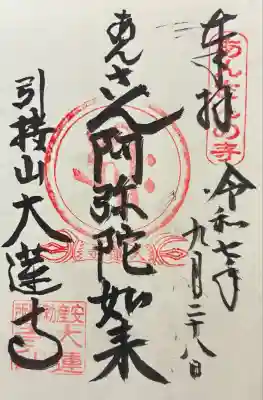 奉拝
あんざんの寺
令和七年
九月二十八日
あんさん阿弥陀如来
引接山大蓮寺
安産
大蓮